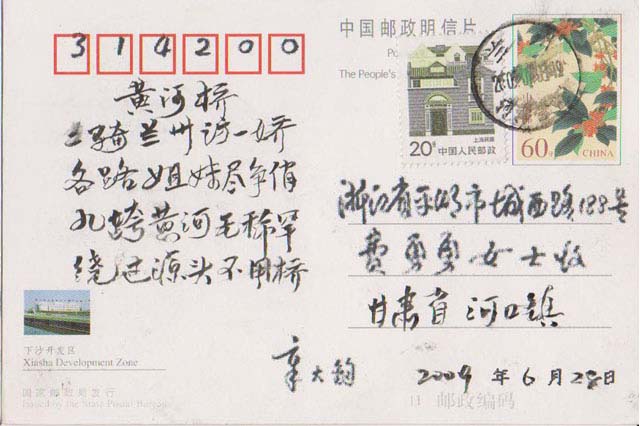 314200
中国邮政明信片
Po
The People's
黄河桥
骑兰州访一娇
各路姐妹尽争俏
九跨黄河毛稀罕
绕过源头不用桥
上海民居
20分 中国人民邮政
60分 CHINA
浙江省平湖市城西路188号
费勇勇女士收
甘肃省河口镇
2009年6月28日
章大钧
下沙开发区
Xiasha Development Zone
国家邮政局发行
Issued by the State Postal Bureau
邮政编码